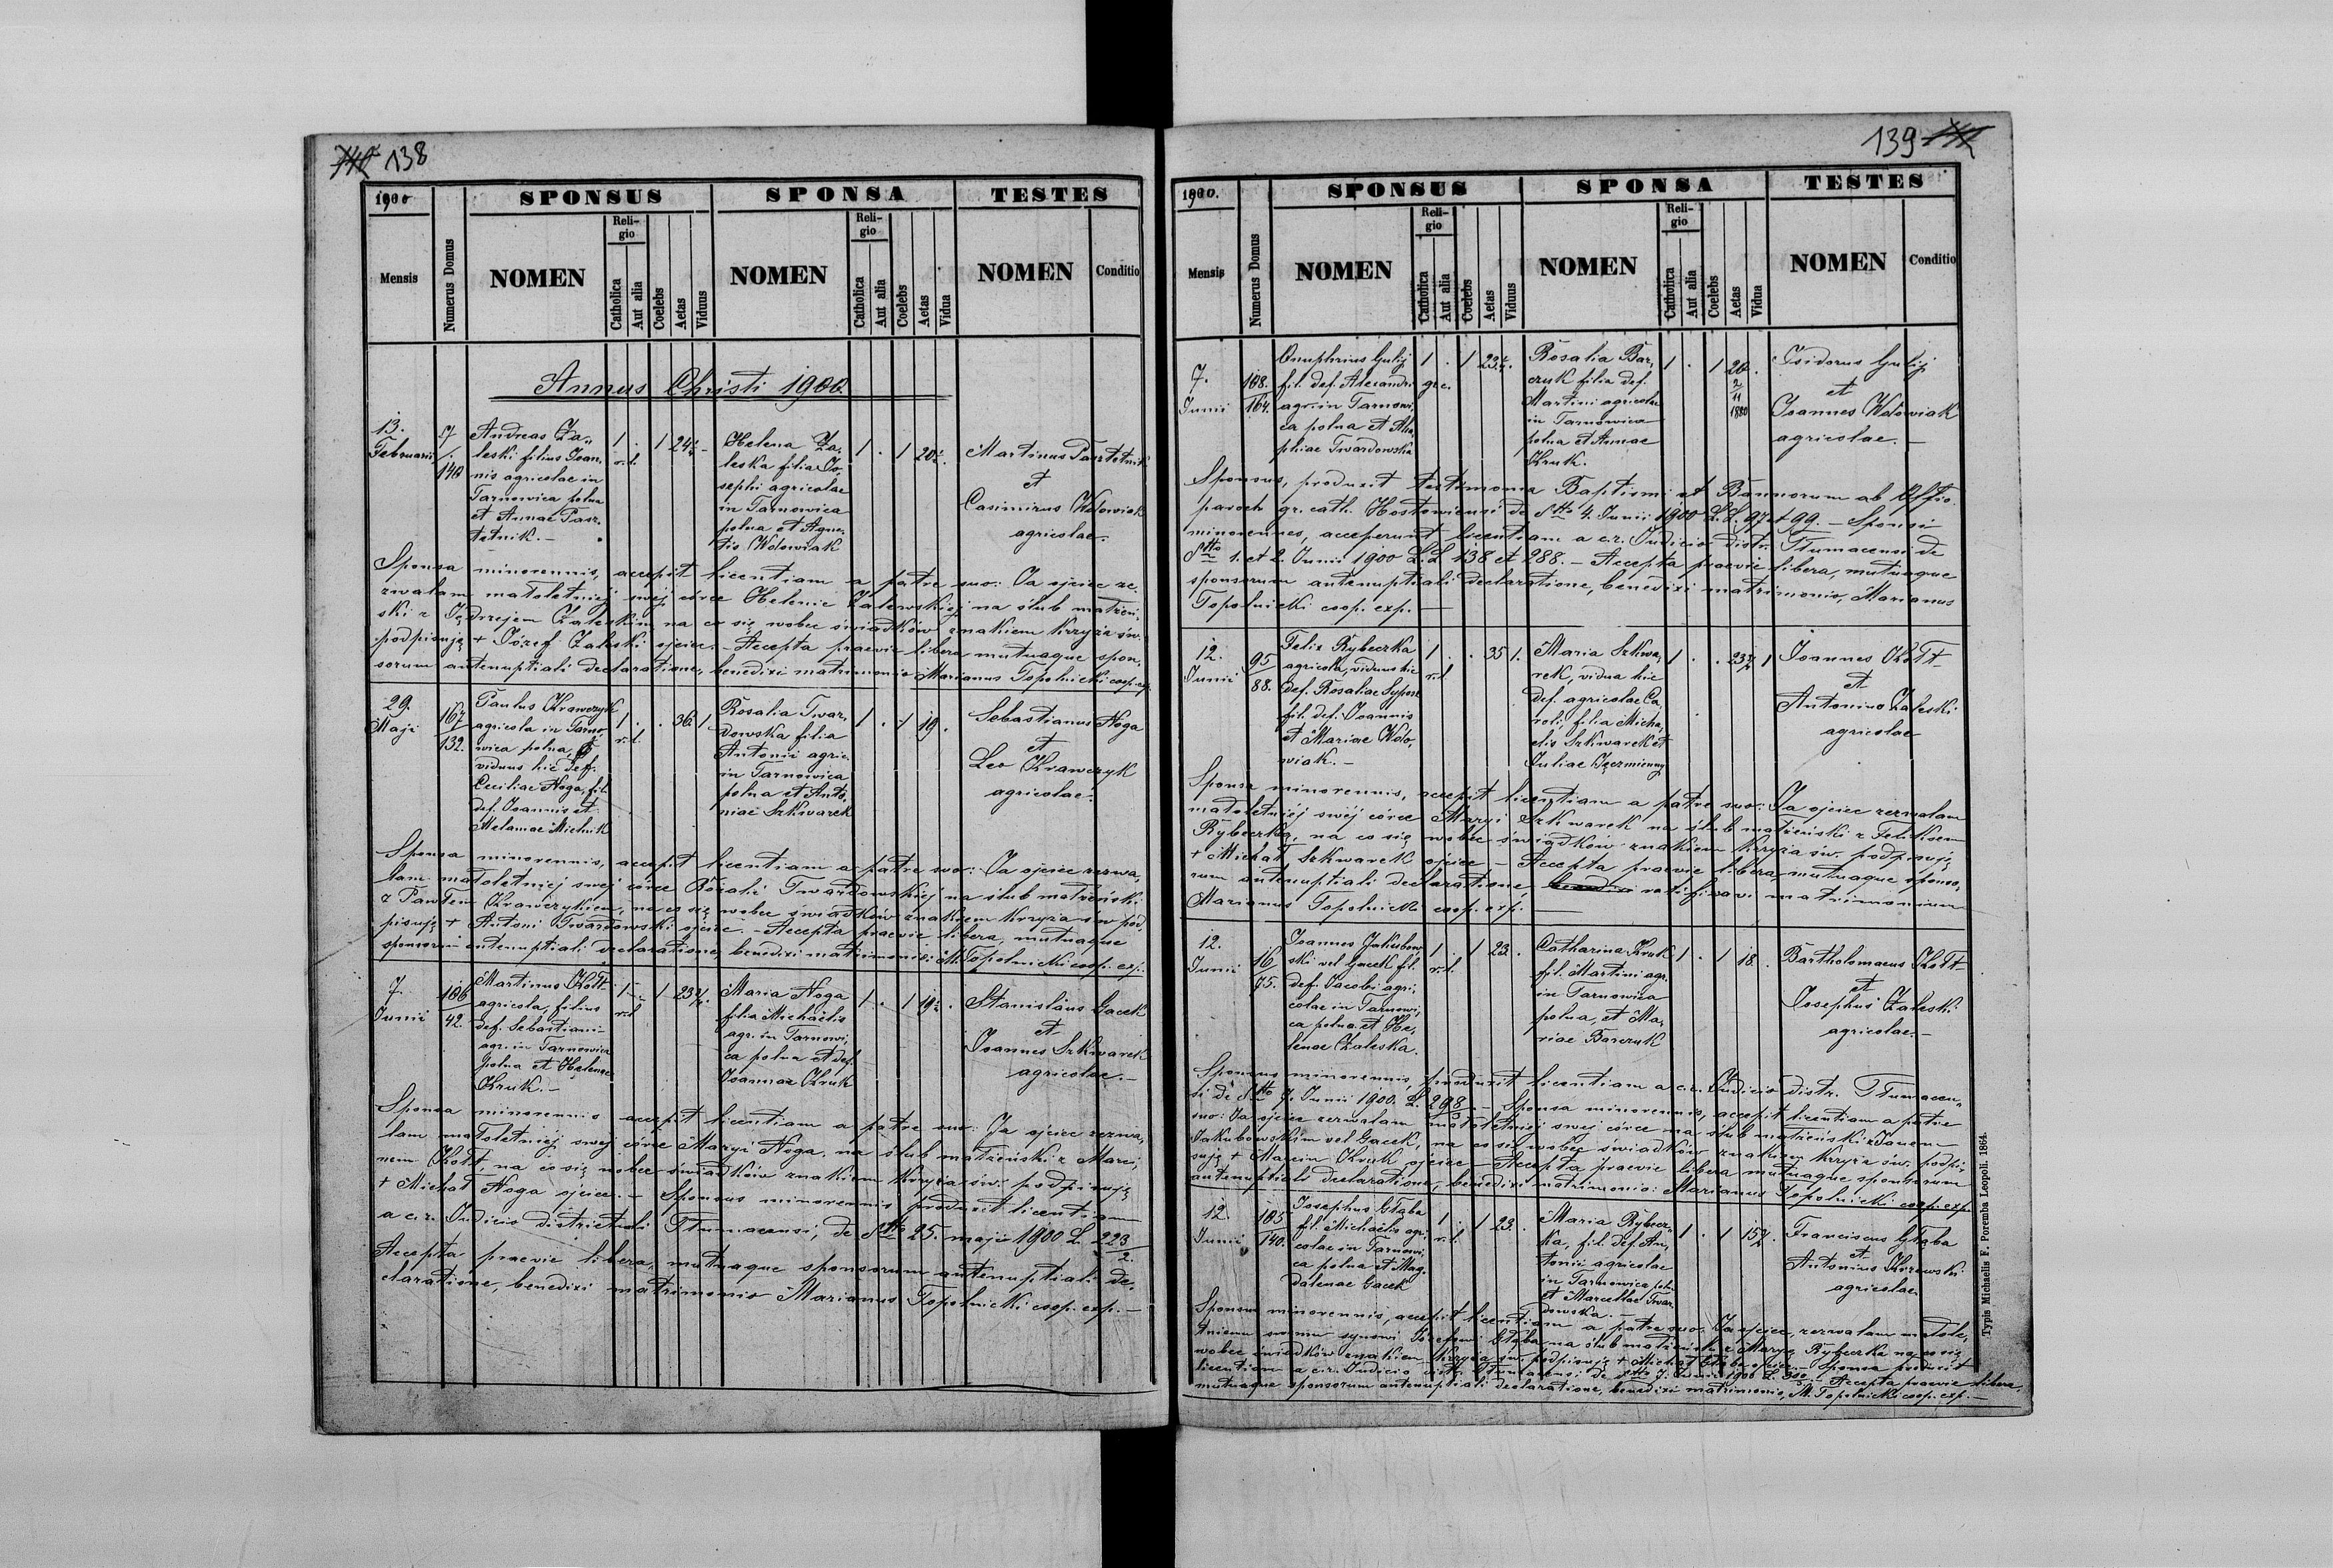 138
1900
SPONSUS
SPONSA
TESTES
Mensis
Numerus Domus
NOMEN
Reli-
gio
Catholica
Aut alia
Coelebs
Aetas
Viduus
NOMEN
Reli-
gio
Catholica
Aut alia
Coelebs
Aetas
Vidua
NOMEN
Conditio
Annus Christi 1900.
13.
Februarii
7
140
Andreas Za„
leski filius Joan,
nis agricolae in
Tarnowica polna
et Annae Pasz,
tetnik. —
1 . 1 24
r.l.
Helena Za,
leska filia Jo,
sephi agricolae
in Tarnowica
polna et Agne,
tis Wołowiak
1 . 1 20
Martinus Pasztetnik
et
Casimirus Wołowiak
agricolae.
Sponsa minorennis, accepit licentiam a patre suo: Ja ojciec ze,
zwalam małoletniej swej córce Helenie Zalewskiej na ślub małżeń,
ski z Jędrzejem Zaleskim na co się wobec świadków znakiem krzyża św.
podpisuję + Józef Zaleski ojciec. — Accepta praevie libera mutuaque spon,
sorum antenuptiali declaratione, benedixi matrimonio Marianus Topolnicki coop. exp.
29.
Maji
167
132.
Paulus Krawczyk
agricola in Tarno
wica polna,
viduus hic def.
Ceciliae Noga, fil.
def. Joannis et
Melaniae Mielnik
1 . . 36. 1.
r.l.
Rosalia Twar,
dowska filia
Antonii agric.
in Tarnowica
polna et Anto,
niae Szkwarek
1 . 1 19.
Sebastianus Noga
et
Leo Krawczyk
agricolae.
Sponsa minorennis, accepit licentiam a patre suo: Ja ojciec zezwa,
lam małoletniej swej córce Rózalii Twardowskiej na ślub małżeński
z Pawłem Krawczykiem, na co się wobec świadków znakiem krzyża św. pod,
pisuję + Antoni Twardowski ojciec. — Accepta praevie libera, mutuaque
sponsorum antenuptiali declaratione, benedixi matrimonio: M. Topolnicki coop. exp.
7.
Junii
186
42.
Martinus Kott
agricola, filius
def. Sebastiani
agr. in Tarnowica
polna et Helenae
Kruk. —
1 - 1 23
r.l
Maria Noga
filia Michaëlis
agr. in Tarnowi,
ca polna et def.
Joannae Kruk
1 . 1 19
Stanislaus Gacek
et
Joannes Szkwarek
agricolae. —
Sponsa minorennis accepit licentiam a patre suo: Ja ojciec zezwa,
lam małoletniéj swej córce Maryi Noga, na ślub małżeński z Marci,
nem Kott, na co się wobec świadków znakiem krzyża św. podpisuję
+ Michał Noga ojciec. — Sponsus minorennis produxit licentiam
a c.r. Judicio districtuali Tłumacensi, de dtto 25. maji 1900 L. 223
2.
Accepta praevie libera, mutuaque sponsorum antenuptiali de,
claratione, benedixi matrimonio Marianus Topolnicki coop. exp. —
139
1900.
SPONSUS
SPONSA
TESTES
Mensis
Numerus Domus
NOMEN
Reli-
gio
Catholica
Aut alia
Coelebs
Aetas
Viduus
NOMEN
Reli-
gio
Catholica
Aut alia
Coelebs
Aetas
Vidua
NOMEN
Conditio
7.
Junii
188.
164.
Onuphrius Gulij
fil. def. Alexandri
agr. in Tarnowi,
ca polna et
Twardowska
1 . 1 23
gr.c.
Rosalia Bar,
czuk filia def.
Martini agricolae
in Tarnowica
polna et Annae
Kruk.
1 . 1 20
2
11
1880
Isidorus Gulij
et
Joannes Wołowiak
agricolae. —
Sponsus, produxit testimonia Baptismi et Bannorum ab Offio.
paroch gr. cath. Hostowiensi de dtto 4. Junii 1900 L.L. 97 et 99. — Sponsi
minorennes, acceperunt licentiam a c.r. Judicio distr. Tłumacensi de
dtto 1. et 2. Junii 1900 L.L 138 et 288. — Accepta praevie libera, mutuaque
sponsorum antenuptiali declaratione, benedixi matrimonio, Marianus
Topolnicki coop. exp. —
12.
Junii
95
88.
Felix Rybeczka
agricola, viduus hic
def. Rosaliae
fil. def. Joannis
et Mariae Woło,
wiak. —
1 . . 35 1.
r.l
Maria Szkwa,
rek, vidua hic
def. agricolae Ca,
roli, filia Micha,
elis Szkwarek et
Juliae Jęczmienny
1 . . 23 1
Joannes Kott
et
Antonino Zaleski
agricolae
Sponsa minorennis, accepit licentiam a patre suo: Ja ojciec zezwalam
małoletniéj swéj córce Maryi Szkwarek na ślub małżeński z Feliksem
Rybeczką, na co się wobec świadków znakiem krzyża św. podpisuję
+ Michał Szkwarek ojciec — Accepta praevie libera, mutuaque sponso,
rum antenuptiali declaratione, ratifikavi matrimonium
Marianus Topolnicki coop. exp. —
12.
Junii
16
75.
Joannes Jakubow,
ski vel Gacek fil.
def. Jacobi agri,
colae in Tarnowi,
ca polna et He,
lenae Zaleska.
1 . 1 23 .
r.l.
Catharina Kruk
fil. Martini agr.
in Tarnowica
polna, et Ma,
riae Barczuk
1 . 1 18. .
Bartholomaeus Kott
et
Josephus Zaleski
agricolae. —
Sponsus minorennis, produxit licentiam a c.r. Judicio distr. Tłumacen,
si de dtto 7. Junii 1900. L. 298 — Sponsa minorennis, accepit licentiam a patre
suo: Ja ojciec zezwalam małoletniej swej córce na ślub małżeński z Janem
Jakubowskim vel Gacek, na co się wobec świadków znakiem krzyża św. podpi,
suję + Marcin Kruk ojciec — Accepta praevie libera mutuaque sponsorum
antenuptiali declaratione, benedixi matrimonio: Marianus Topolnicki coop. exp.
12.
Junii
185
140.
Josephus Głąba
fil. Michaëlis agri,
colae in Tarnowi,
ca polna et Mag,
dalenae Gacek
1 . 1 23. .
r.l.
Maria Rybecz,
ka, fil. def. An,
tonii agricolae
in Tarnowica polna
et Marcellae Twar
dowska. —
1 . 1 15
Franciscus Głąba
et
Antonius Krzewski
agricolae.
Sponsus minorennis, accepit licentiam a patre suo. Ja ojciec, zezwalam małole,
tniemu swemu synowi Józefowi Głąba na ślub małżeński z Maryą Rybeczka na co się
wobec świadków znakiem krzyża św. podpisuję + Michał Głąba ojciec — Sponsa produxit
licentiam a c.r. Judicio distr. Tłumacensi de dtto 7. Junii 1900 L. 300 — Accepta praevie libera,
mutuaque sponsorum antenuptiali declaratione, benedixi matrimonio, M. Topolnicki coop. exp. —
Typis Michaelis F. Poremba Leopoli. 1864.